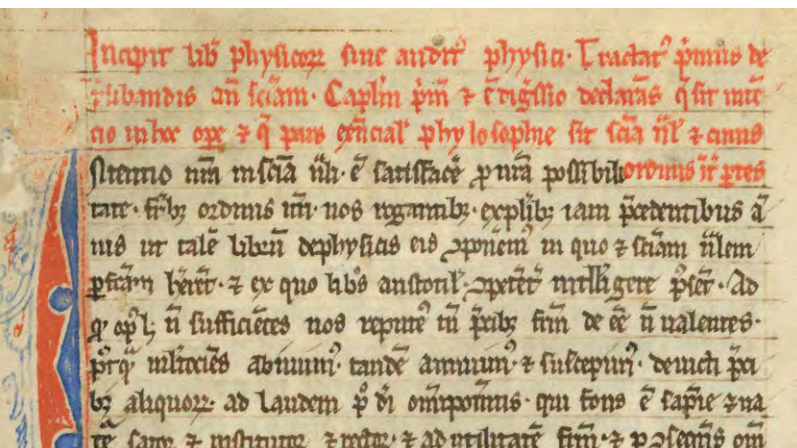 Incipit lib̄ physicoꝝ siue auditꝰ physici. Tractatꝰ p̄mus de
p̄libandis an̄ sc̄iam. Capl̄m p̄m ⁊ ē digr̄ssio declarās q̄ sit inte
tio in hoc oꝑe ⁊ q̄ pars ess̄ncialꝭ phylosophie sit sc̄ia nl̄ꝭ ⁊ cuius
ntentio nr̄a in sc̄ia nl̄i ē satisfac̄e ꝓ nr̄a possibili ordinis it̄ ꝑtes
tate fr̄ibꝫ ordinis nr̄i nos rogantibꝫ ex plībꝫ iam p̄cedentibus ā
nis ut talē libꝝ de physicis eis ꝯponem̄ in quo ⁊ sc̄iam nl̄em
ꝑf̄cam h̄er̄et ⁊ ex quo lib̄s aristotilꝭ ꝯpetēt̄ intelligere poss̄et. Ad
qꝰ opꝰ lꝫ n̄ sufficiētes nos reputem̄ tn̄ p̄cibꝫ fr̄m de eē n̄ ualentes
abnuimꝰ tandē annuimꝰ ⁊ suscepimꝰ deuicti p̄ci
bꝫ aliquoꝝ ad Laudem p̄ dī om̄ipotētis qui fons ē sapīe ⁊ na
te sator ⁊ institutor ⁊ rector ⁊ ad utilitatē fr̄m ⁊ ꝑ ꝯsequēs om̄